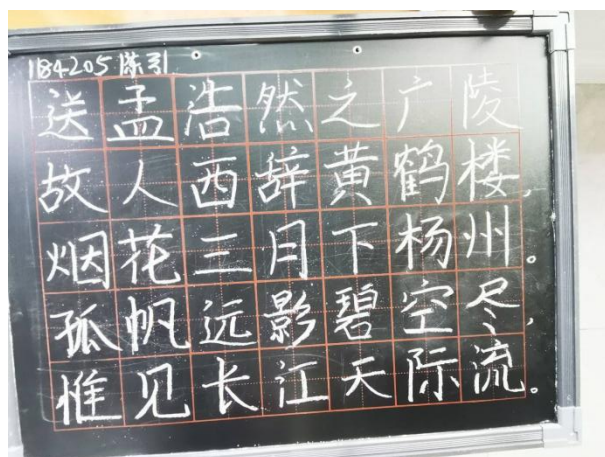 184205 陈引
送孟浩然之广陵
故人西辞黄鹤楼,
烟花三月下杨州。
孤帆远影碧空尽,
惟见长江天际流。